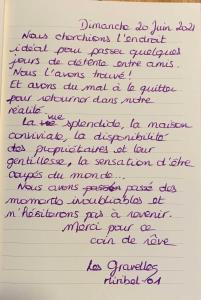 Dimanche 20 Juin 2021
Nous cherchions l'endroit
idéal pour passer quelques
jours de détente entre amis.
Nous l'avons trouvé!
Et avons du mal à le quitter
pour retourner dans notre
réalité.
La vue splendide, la maison
conviviale, la disponibilité
des propriétaires et leur
gentillesse, la sensation d'être
coupés du monde...
Nous avons passé des
moments inoubliables et
n'hésiterons pas à revenir.
Merci pour ce
coin de rêve
Les Gravelles